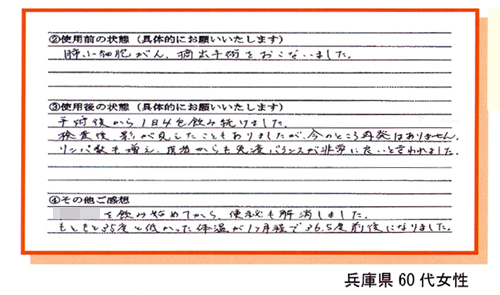 ②使用前の状態（具体的にお願いいたします）
肺小細胞がん、摘出手術をおこないました。
③使用後の状態（具体的にお願いいたします）
手術後から1日4を飲み続けました。
検査後、影が見したこともありましたが、今のところ再発はありません。
リンパ数も増え、医者からも免疫バランスが非常に良いと言われました。
④その他ご感想
を飲み始めてから、便秘も解消しました。
もともと35度と低かった体温が1ヶ月程で36.5度前後になりました。
兵庫県 60代女性